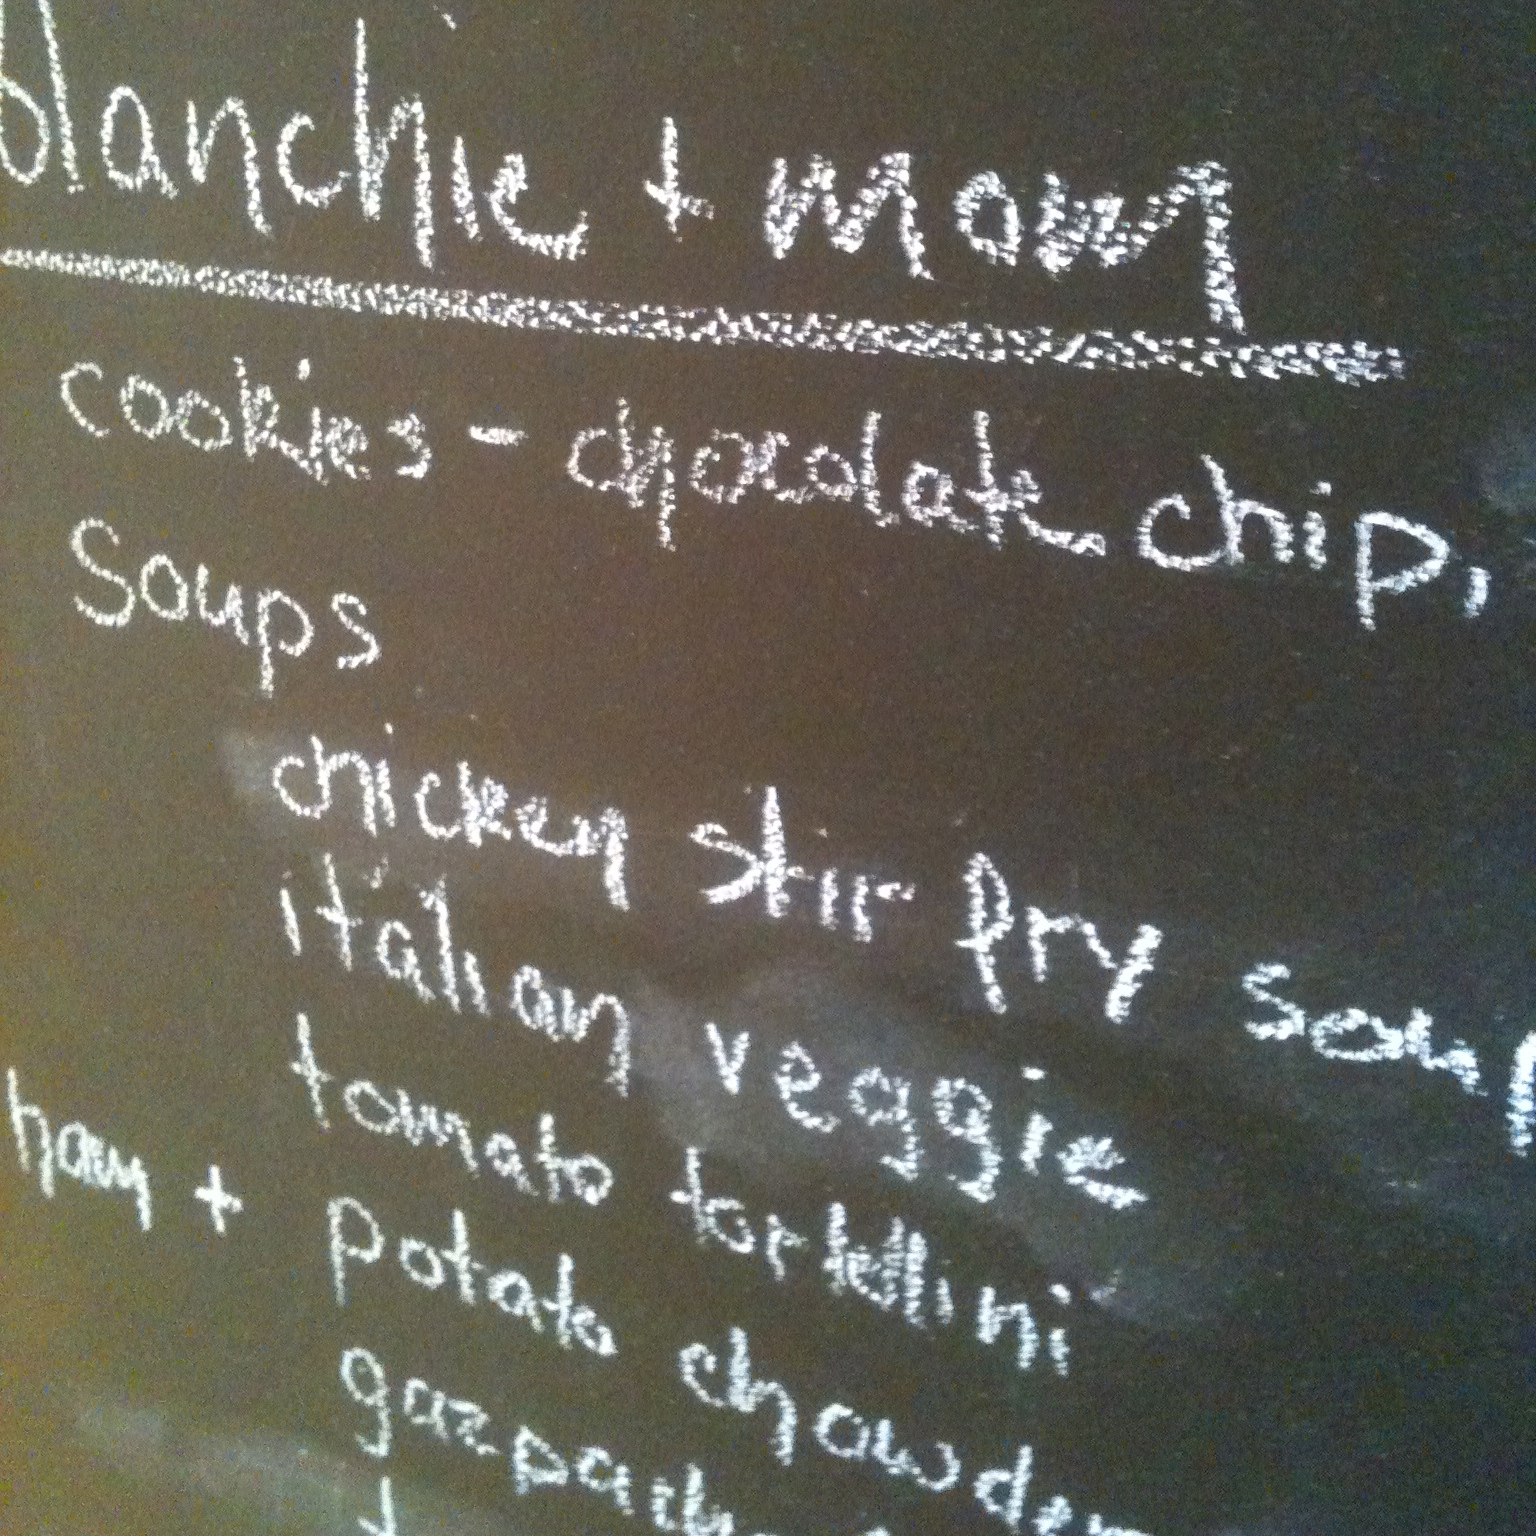 blanchie + mom
cookies - chocolate chip,
Soups
chicken stir fry soup
italian veggie
tomato tortellini
ham + potato chowder
gazpacho